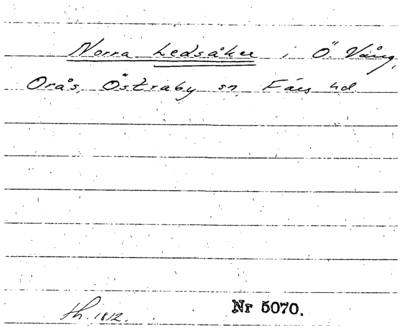 Norra Ledsåker i Ö. Vång,
Orås, Östraby sn, Färs hd.
Sh. 1812.
Nr 5070.